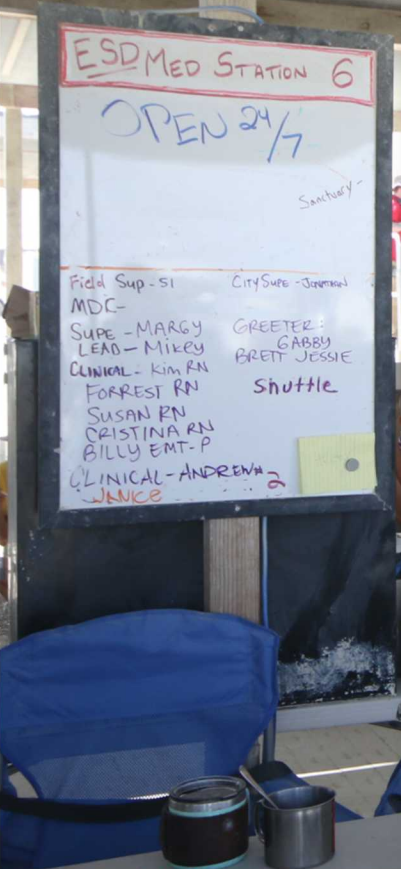 ESD MED STATION 6
OPEN 24/7
Sanctuary -
Field Sup - 51
MDC-
SUPE - MARGY
LEAD - Mikey
CLINICAL - Kim RN
FORREST RN
SUSAN RN
CRISTINA RN
BILLY EMT-P
CLINICAL - ANDREW # 2
JANICE
CITY SUPE - JONATHAN
GREETER:
GABBY
BRETT JESSIE
Shuttle